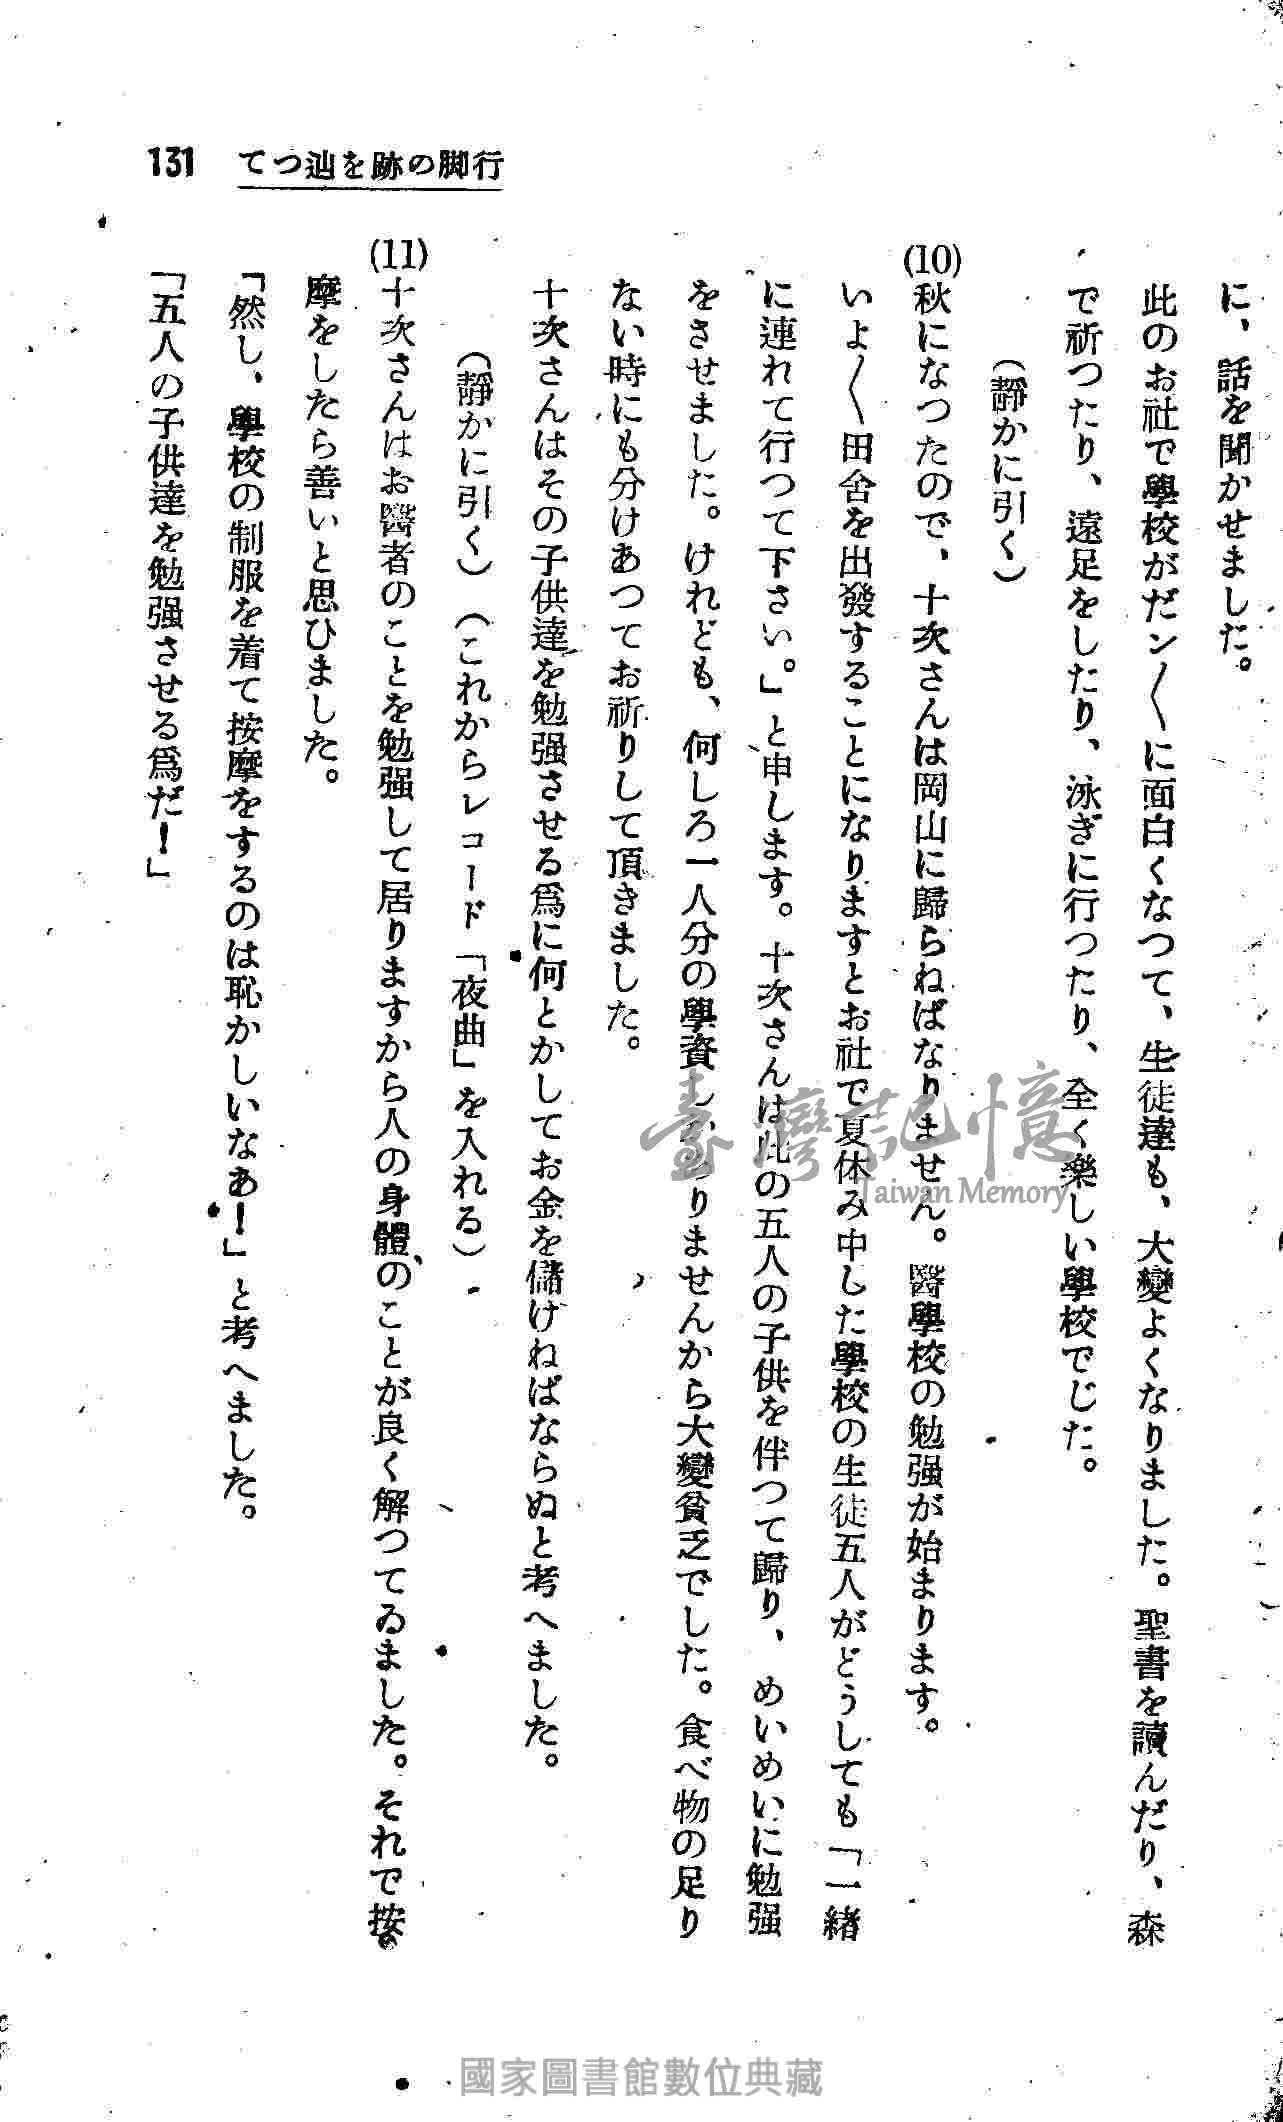 131 てつ辿を跡の脚行
に、話を聞かせました。
此のお社で學校がだン〱に面白くなつて、生徒達も、大變よくなりました。聖書を讀んだり、森
で祈つたり、遠足をしたり、泳ぎに行つたり、全く樂しい學校でした。
(靜かに引く)
(10)秋になつたので、十次さんは岡山に歸らねばなりません。醫學校の勉强が始まります。
いよ〱田舍を出發することになりますとお社で夏休み中した學校の生徒五人がどうしても「一緒
に連れて行つて下さい。」と申します。十次さんは此の五人の子供を伴つて歸り、めいめいに勉强
をさせました。けれども、何しろ一人分の學資しかありませんから大變貧乏でした。食べ物の足り
ない時にも分けあつてお祈りして頂きました。
十次さんはその子供達を勉强させる爲に何とかしてお金を儲けねばならぬと考へました。
(靜かに引く)(これからレコード「夜曲」を入れる)
(11)十次さんはお醫者のことを勉强して居りますから人の身體のことが良く解つてゐました。それで按
摩をしたら善いと思ひました。
「然し、學校の制服を着て按摩をするのは恥かしいなあ!」と考へました。
「五人の子供達を勉强させる爲だ!」
臺灣記憶
Taiwan Memory
國家圖書館數位典藏